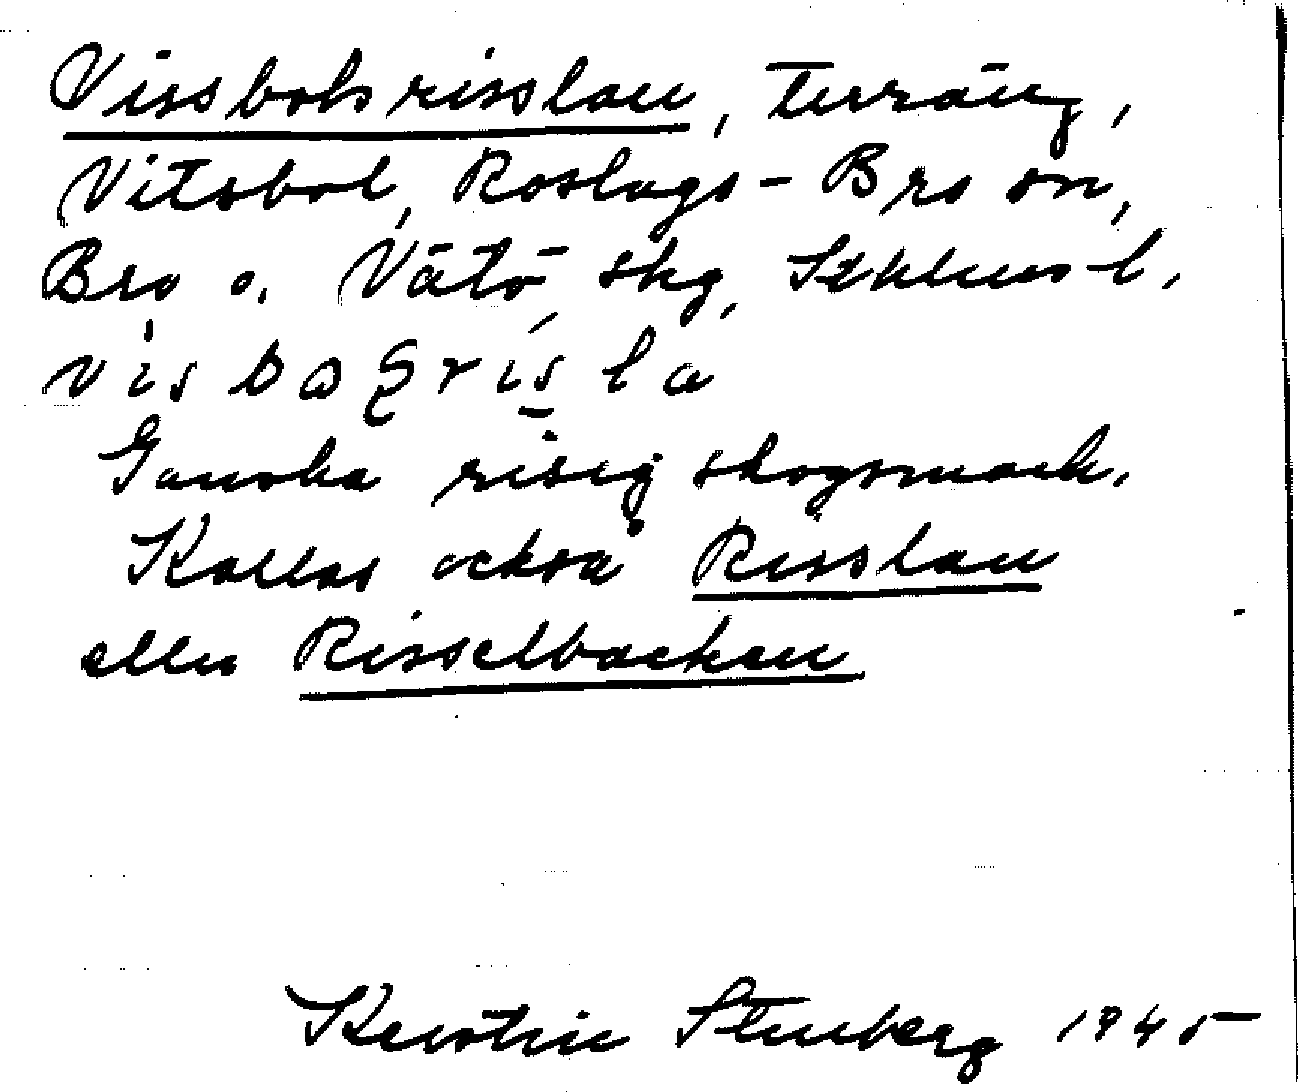 Vissbolsrisslan, terräng,
Vitsbol, Roslags-Bro sn,
Bro o. Vätö skg, Sthlms l.
Ganska risig skogsmark.
Kallas också Risslan
eller Risselbacken
Kerstin Stenberg 1945